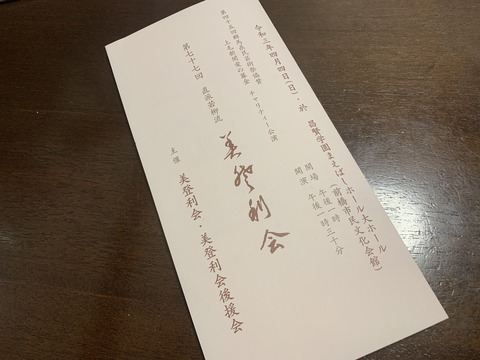 令和三年四月四日(日)・於 昌賢学園まえばしホール大ホール
(前橋市民文化会館)
開場 午後一時
開演 午後一時三十分
第四十五回群馬県民芸術祭協賛
上毛新聞愛の募金 チャリティー公演
第七十七回 直派若柳流
美登利会
主催 美登利会・美登利会後援会